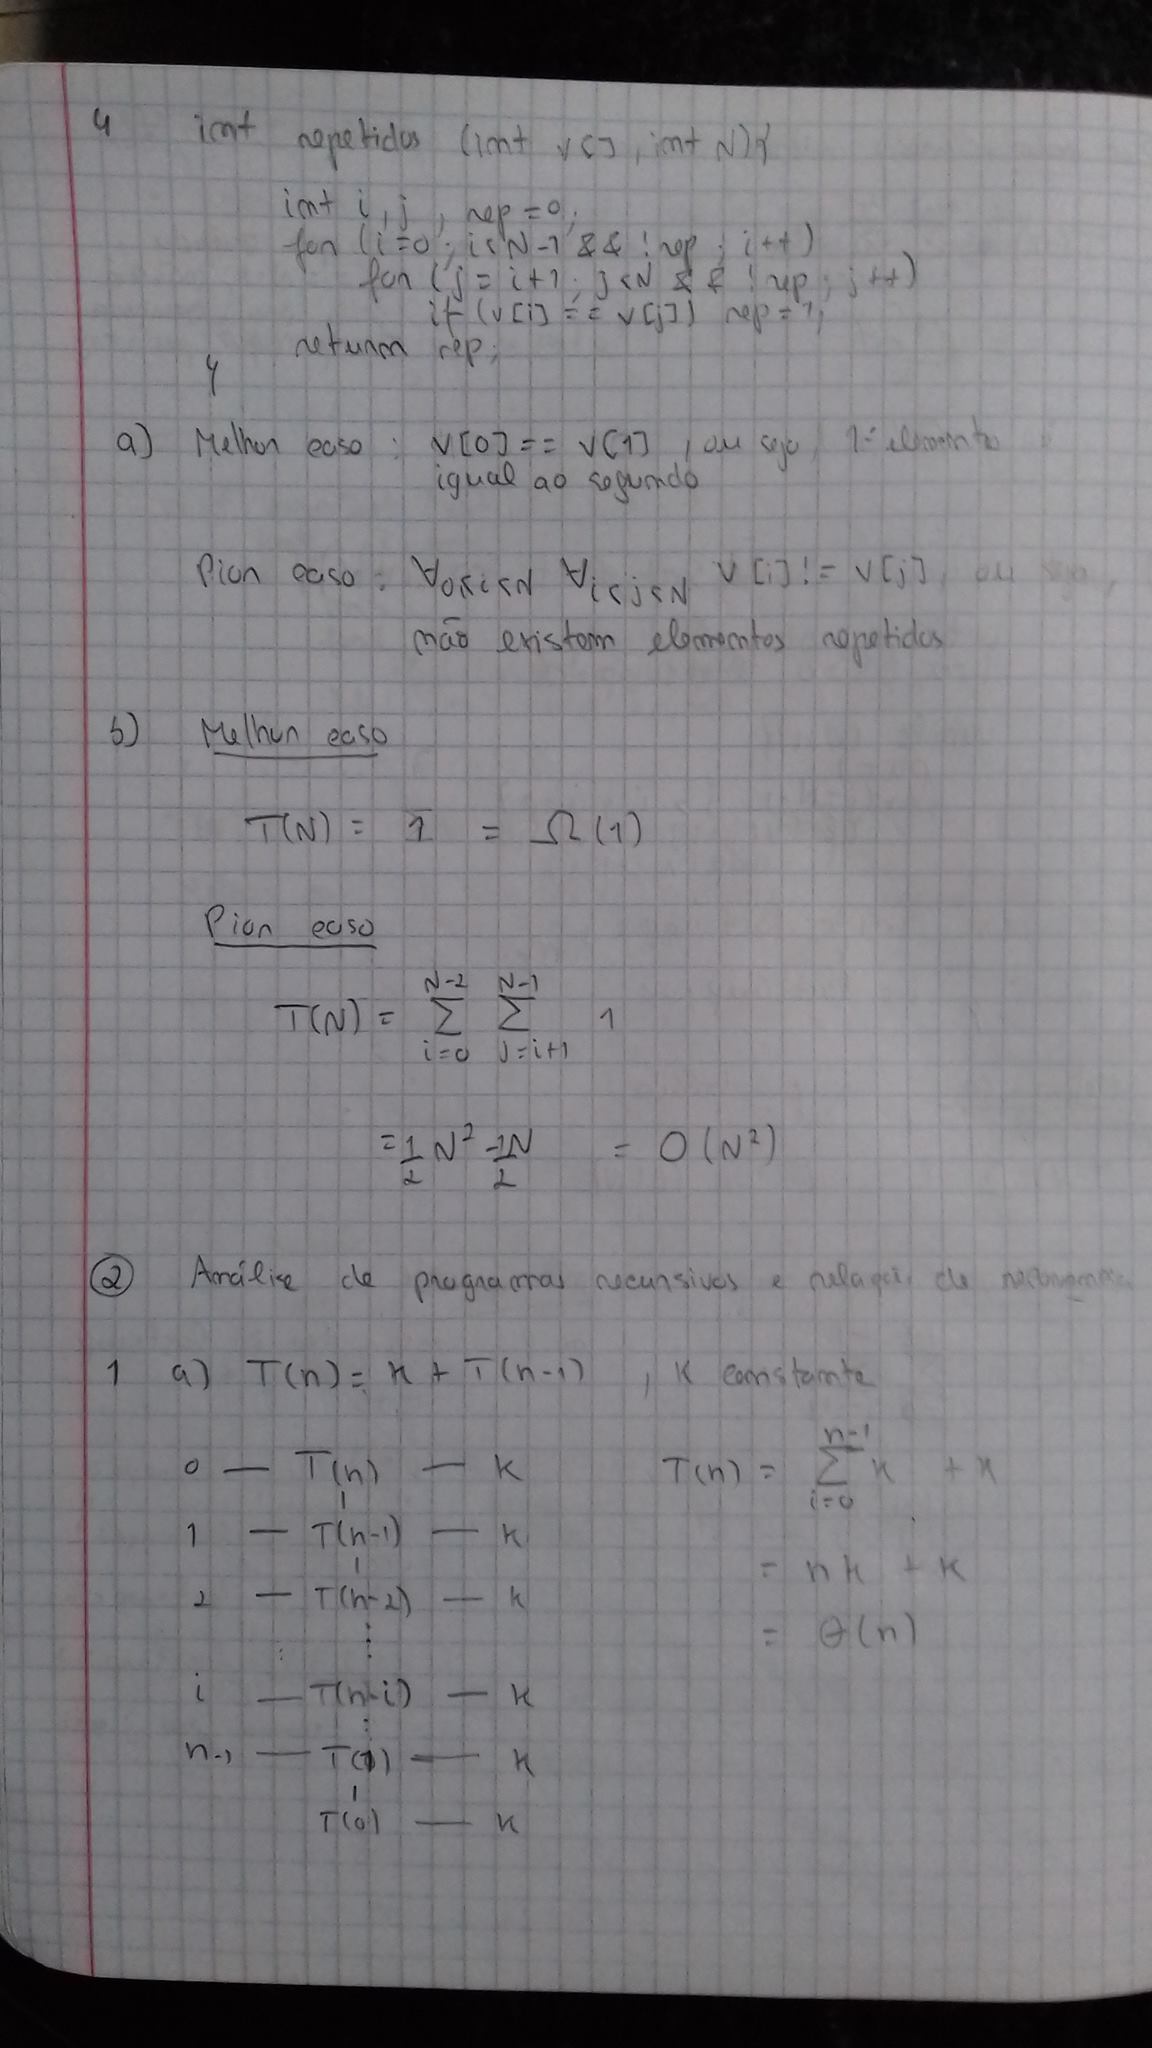 4 int repetidos (int v[], int N){
int i, j, rep=0;
for (i=0; i<N-1 && !rep; i++)
for (j=i+1; j<N && !rep; j++)
if (v[i] == v[j]) rep=1;
return rep;
}
a) Melhor caso: v[0] == v[1], ou seja, 1º elemento
igual ao segundo
Pior caso: ∀0≤i<N ∀i<j<N v[i] != v[j], ou seja,
não existem elementos repetidos
b) Melhor caso
T(N) = 1 = Ω(1)
Pior caso
N-2 N-1
T(N) = Σ Σ 1
i=0 j=i+1
= 1/2 N² - 1/2 N = O(N²)
② Análise de programas recursivos e relações de
1 a) T(n) = k + T(n-1), k constante
0 — T(n) — k
1 — T(n-1) — k
2 — T(n-2) — k
⋮ ⋮
i — T(n-i) — k
⋮
n-1 — T(1) — k
T(0) — k
n-1
T(n) = Σ k + k
i=0
= nk + k
= θ(n)